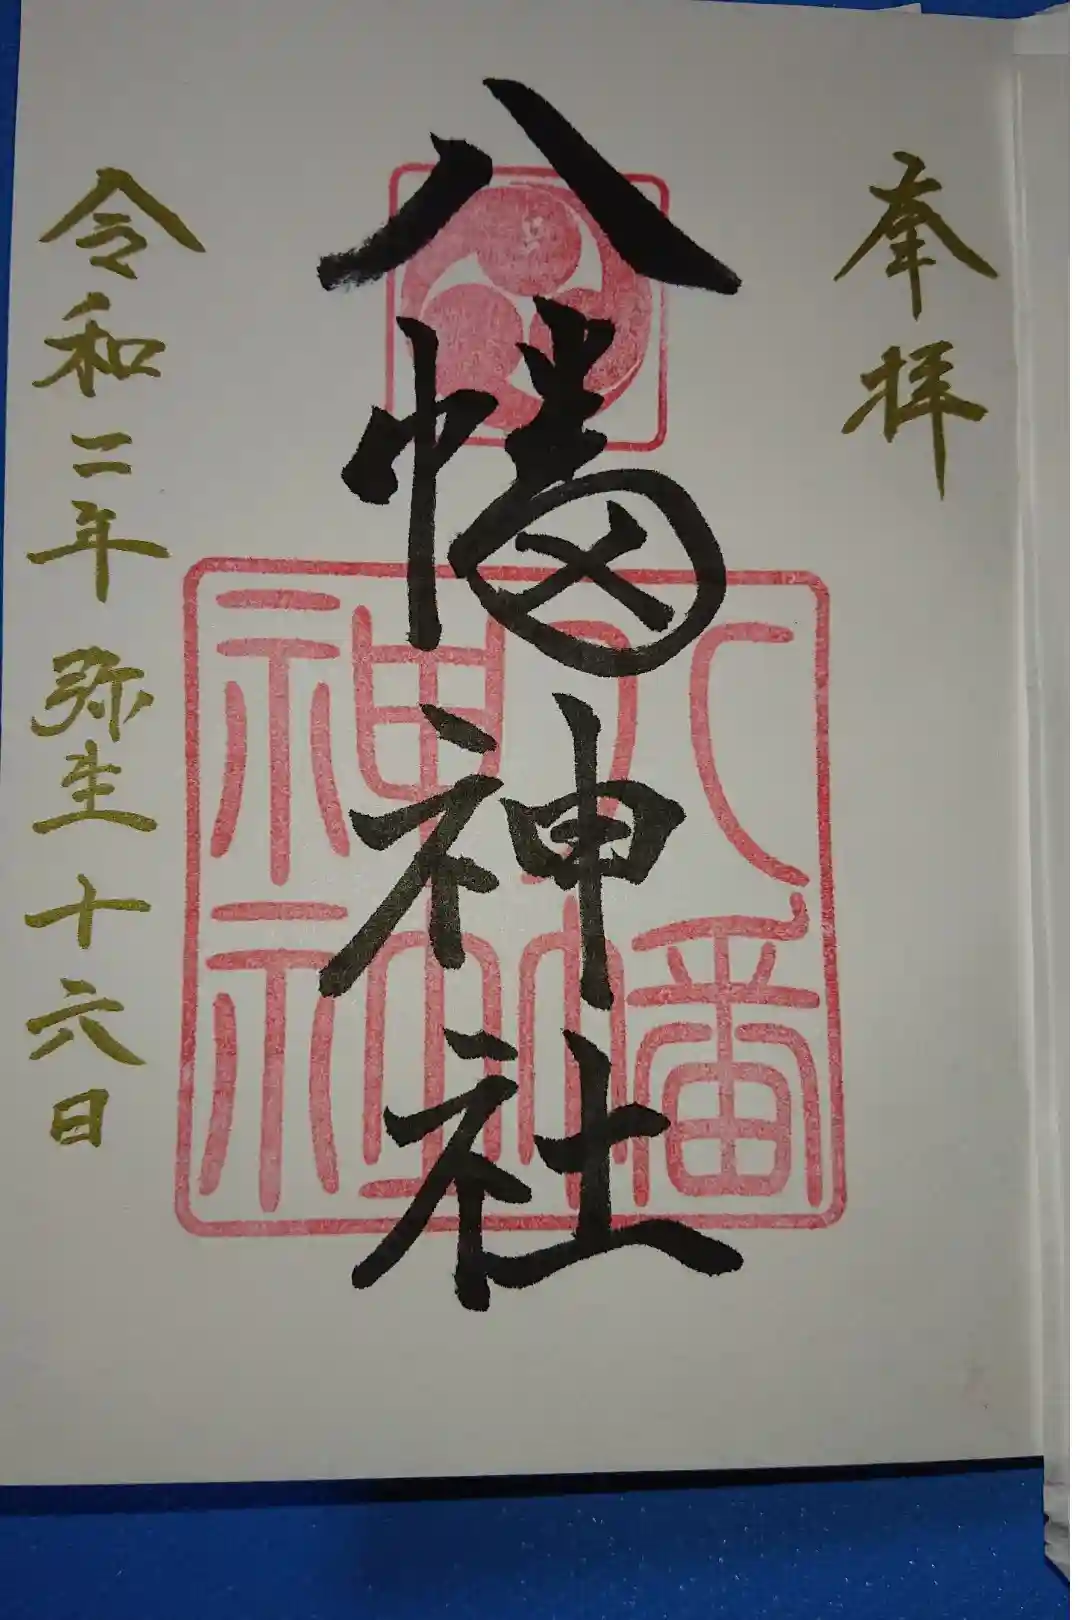 奉拝
八幡神社
八幡
神社
令和二年弥生十六日